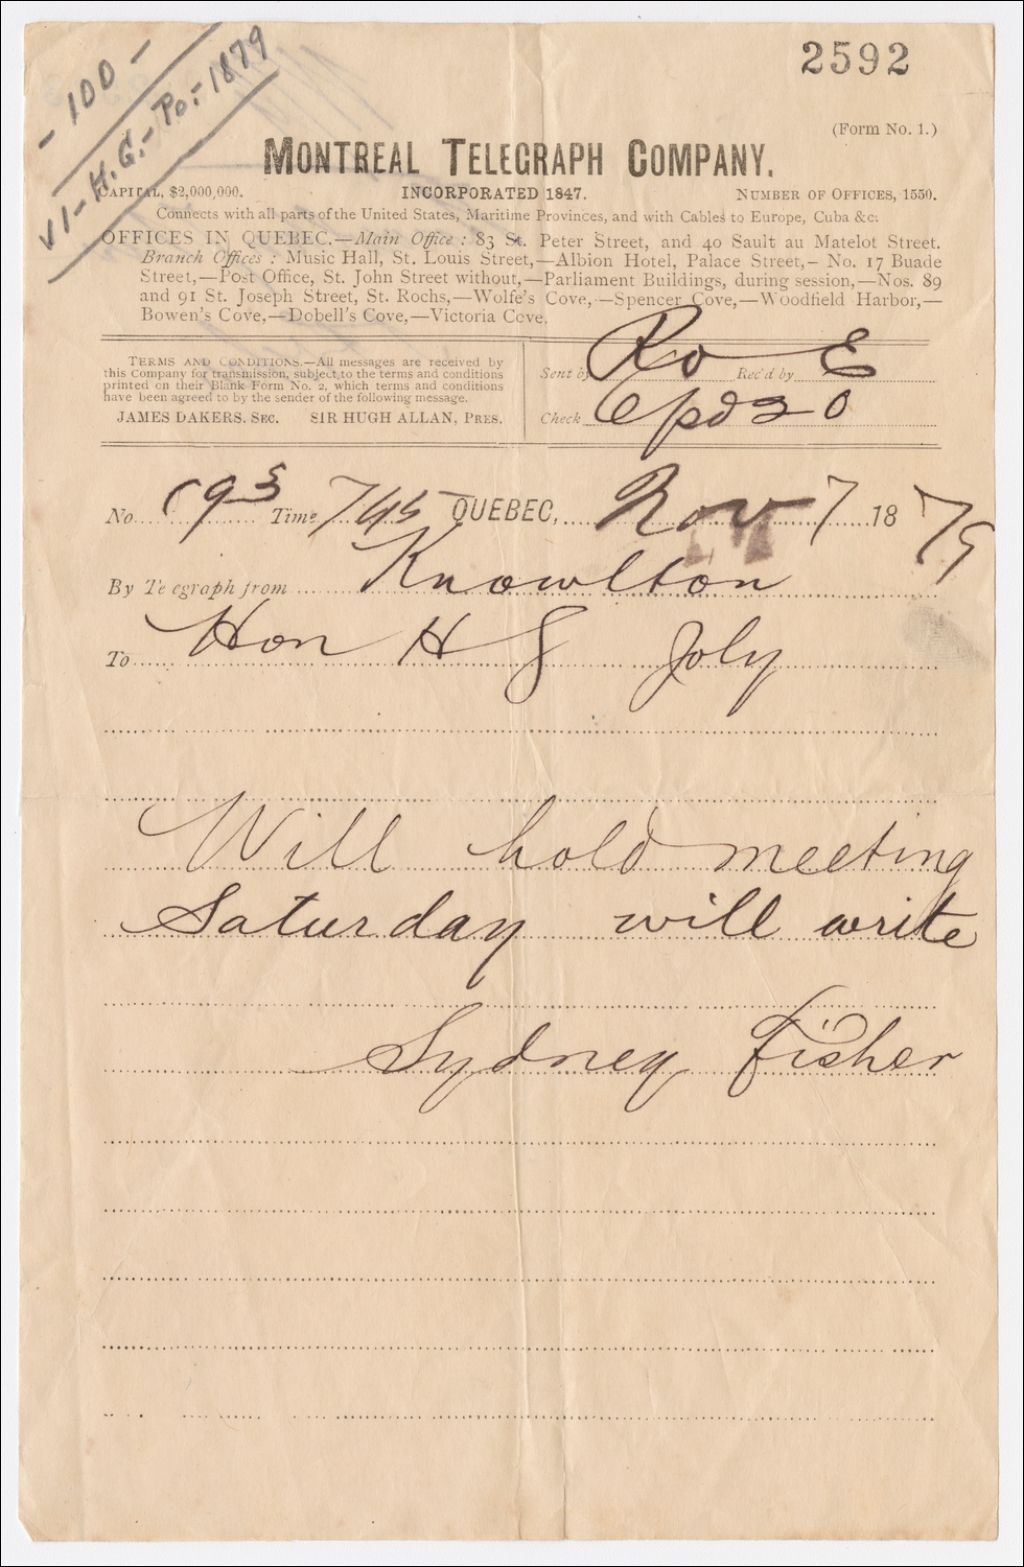 2592
- 100 -
VI - H. G. - Po: - 1879
(Form No. 1.)
MONTREAL TELEGRAPH COMPANY.
CAPITAL, $2,000,000. INCORPORATED 1847. NUMBER OF OFFICES, 1550.
Connects with all parts of the United States, Maritime Provinces, and with Cables to Europe, Cuba &c.
OFFICES IN QUEBEC.—Main Office : 83 St. Peter Street, and 40 Sault au Matelot Street.
Branch Offices : Music Hall, St. Louis Street,—Albion Hotel, Palace Street,— No. 17 Buade
Street,—Post Office, St. John Street without,—Parliament Buildings, during session,—Nos. 89
and 91 St. Joseph Street, St. Rochs,—Wolfe's Cove,—Spencer Cove,—Woodfield Harbor,—
Bowen's Cove,—Dobell's Cove,—Victoria Cove.
TERMS AND CONDITIONS.—All messages are received by
this Company for transmission, subject to the terms and conditions
printed on their Blank Form No. 2, which terms and conditions
have been agreed to by the sender of the following message.
JAMES DAKERS. SEC. SIR HUGH ALLAN, PRES.
Sent by Ro Rec'd by E
Check 6 pd 20
No. 193 Time 745 QUEBEC, Nov 7 1879
By Telegraph from Knowlton
To Hon H G Joly
Will hold meeting
Saturday will write
Sydney Fisher